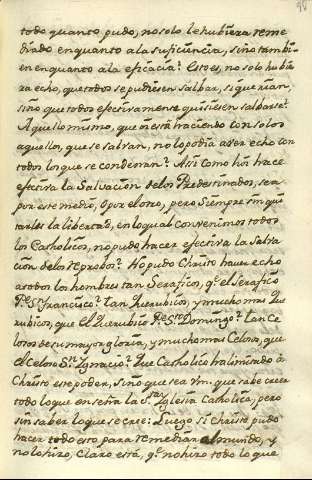 98
todo quanto pudo, no solo le hubiera reme
diado en quanto a la suficiencia, sino tambi-
en en quanto a la eficacia? Esto es, no solo hubie
ra echo, que todos se pudiesen salbar, si querian,
sino que todos efectivamente quisiesen salbarse?
Aquello mismo, que Dios está haciendo con solos
aquellos, que se salvan, no lo podia aver echo con
todos los que se condenan? Assi como hoi hace
efectiva la Salvacion de los Predestinados, sea
por este medio, o por el otro, pero siempre sin qui
tarles la libertad, en lo qual convenimos todos
los Catholicos, no pudo hacer efectiva la Salva
cion de los reprobos? No pudo Christo haver echo
a todos los hombres tan Serafico, qe. el Serafico
Pe. Sn. Francisco? tan Querubicos, y mucho mas Que
rubicos, que el Querubico Pe. Sto. Domingo? tan Ce
losos de su mayor gloria, y mucho mas Celosos, que
el Celoso Sn. Ignacio? Que Catholico ha limitado à
Christo este poder, sino que sea Vm. que sabe creer
todo lo que enseña la Sta. Iglesia Catholica, pero
sin saber lo que se cree: Luego si Christo pudo
hacer todo esto para remediar al mundo, y
no lo hizo, claro está, qe. no hizo todo lo que